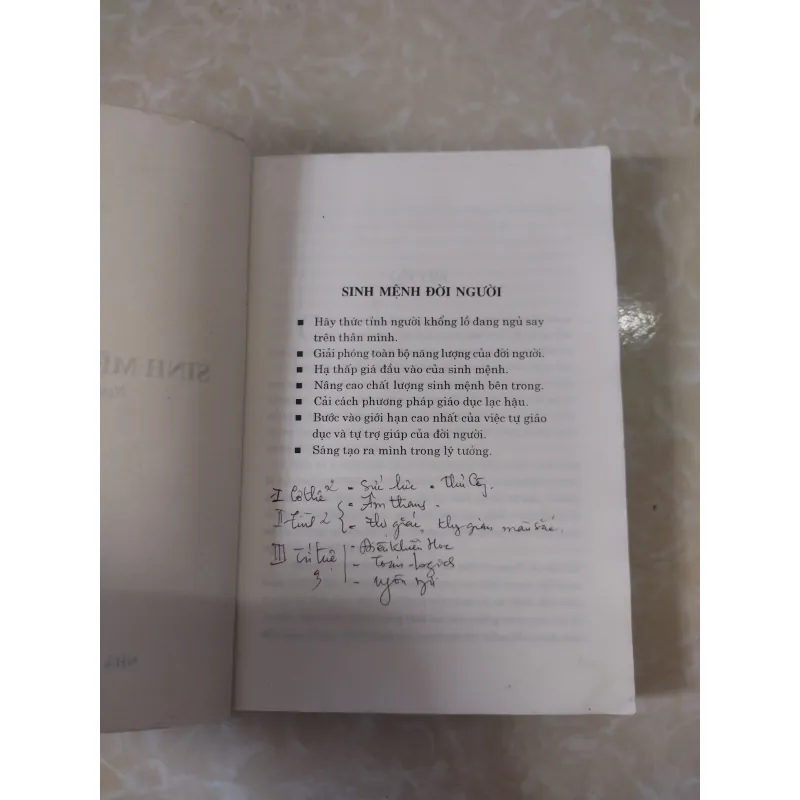 SINH MỆNH ĐỜI NGƯỜI
■ Hãy thức tỉnh người khổng lồ đang ngủ say
trên thân mình.
■ Giải phóng toàn bộ năng lượng của đời người.
■ Hạ thấp giá đầu vào của sinh mệnh.
■ Nâng cao chất lượng sinh mệnh bên trong.
■ Cải cách phương pháp giáo dục lạc hậu.
■ Bước vào giới hạn cao nhất của việc tự giáo
dục và tự trợ giúp của đời người.
■ Sáng tạo ra mình trong lý tưởng.
I Cơ thể - Sức lực -
II - Âm thanh -
- Thị giác, màu sắc.
III Trí tuệ - Điều khiển học
3 - Toán - Logics
- Ngôn ngữ
SINH MỆ
NHÀ